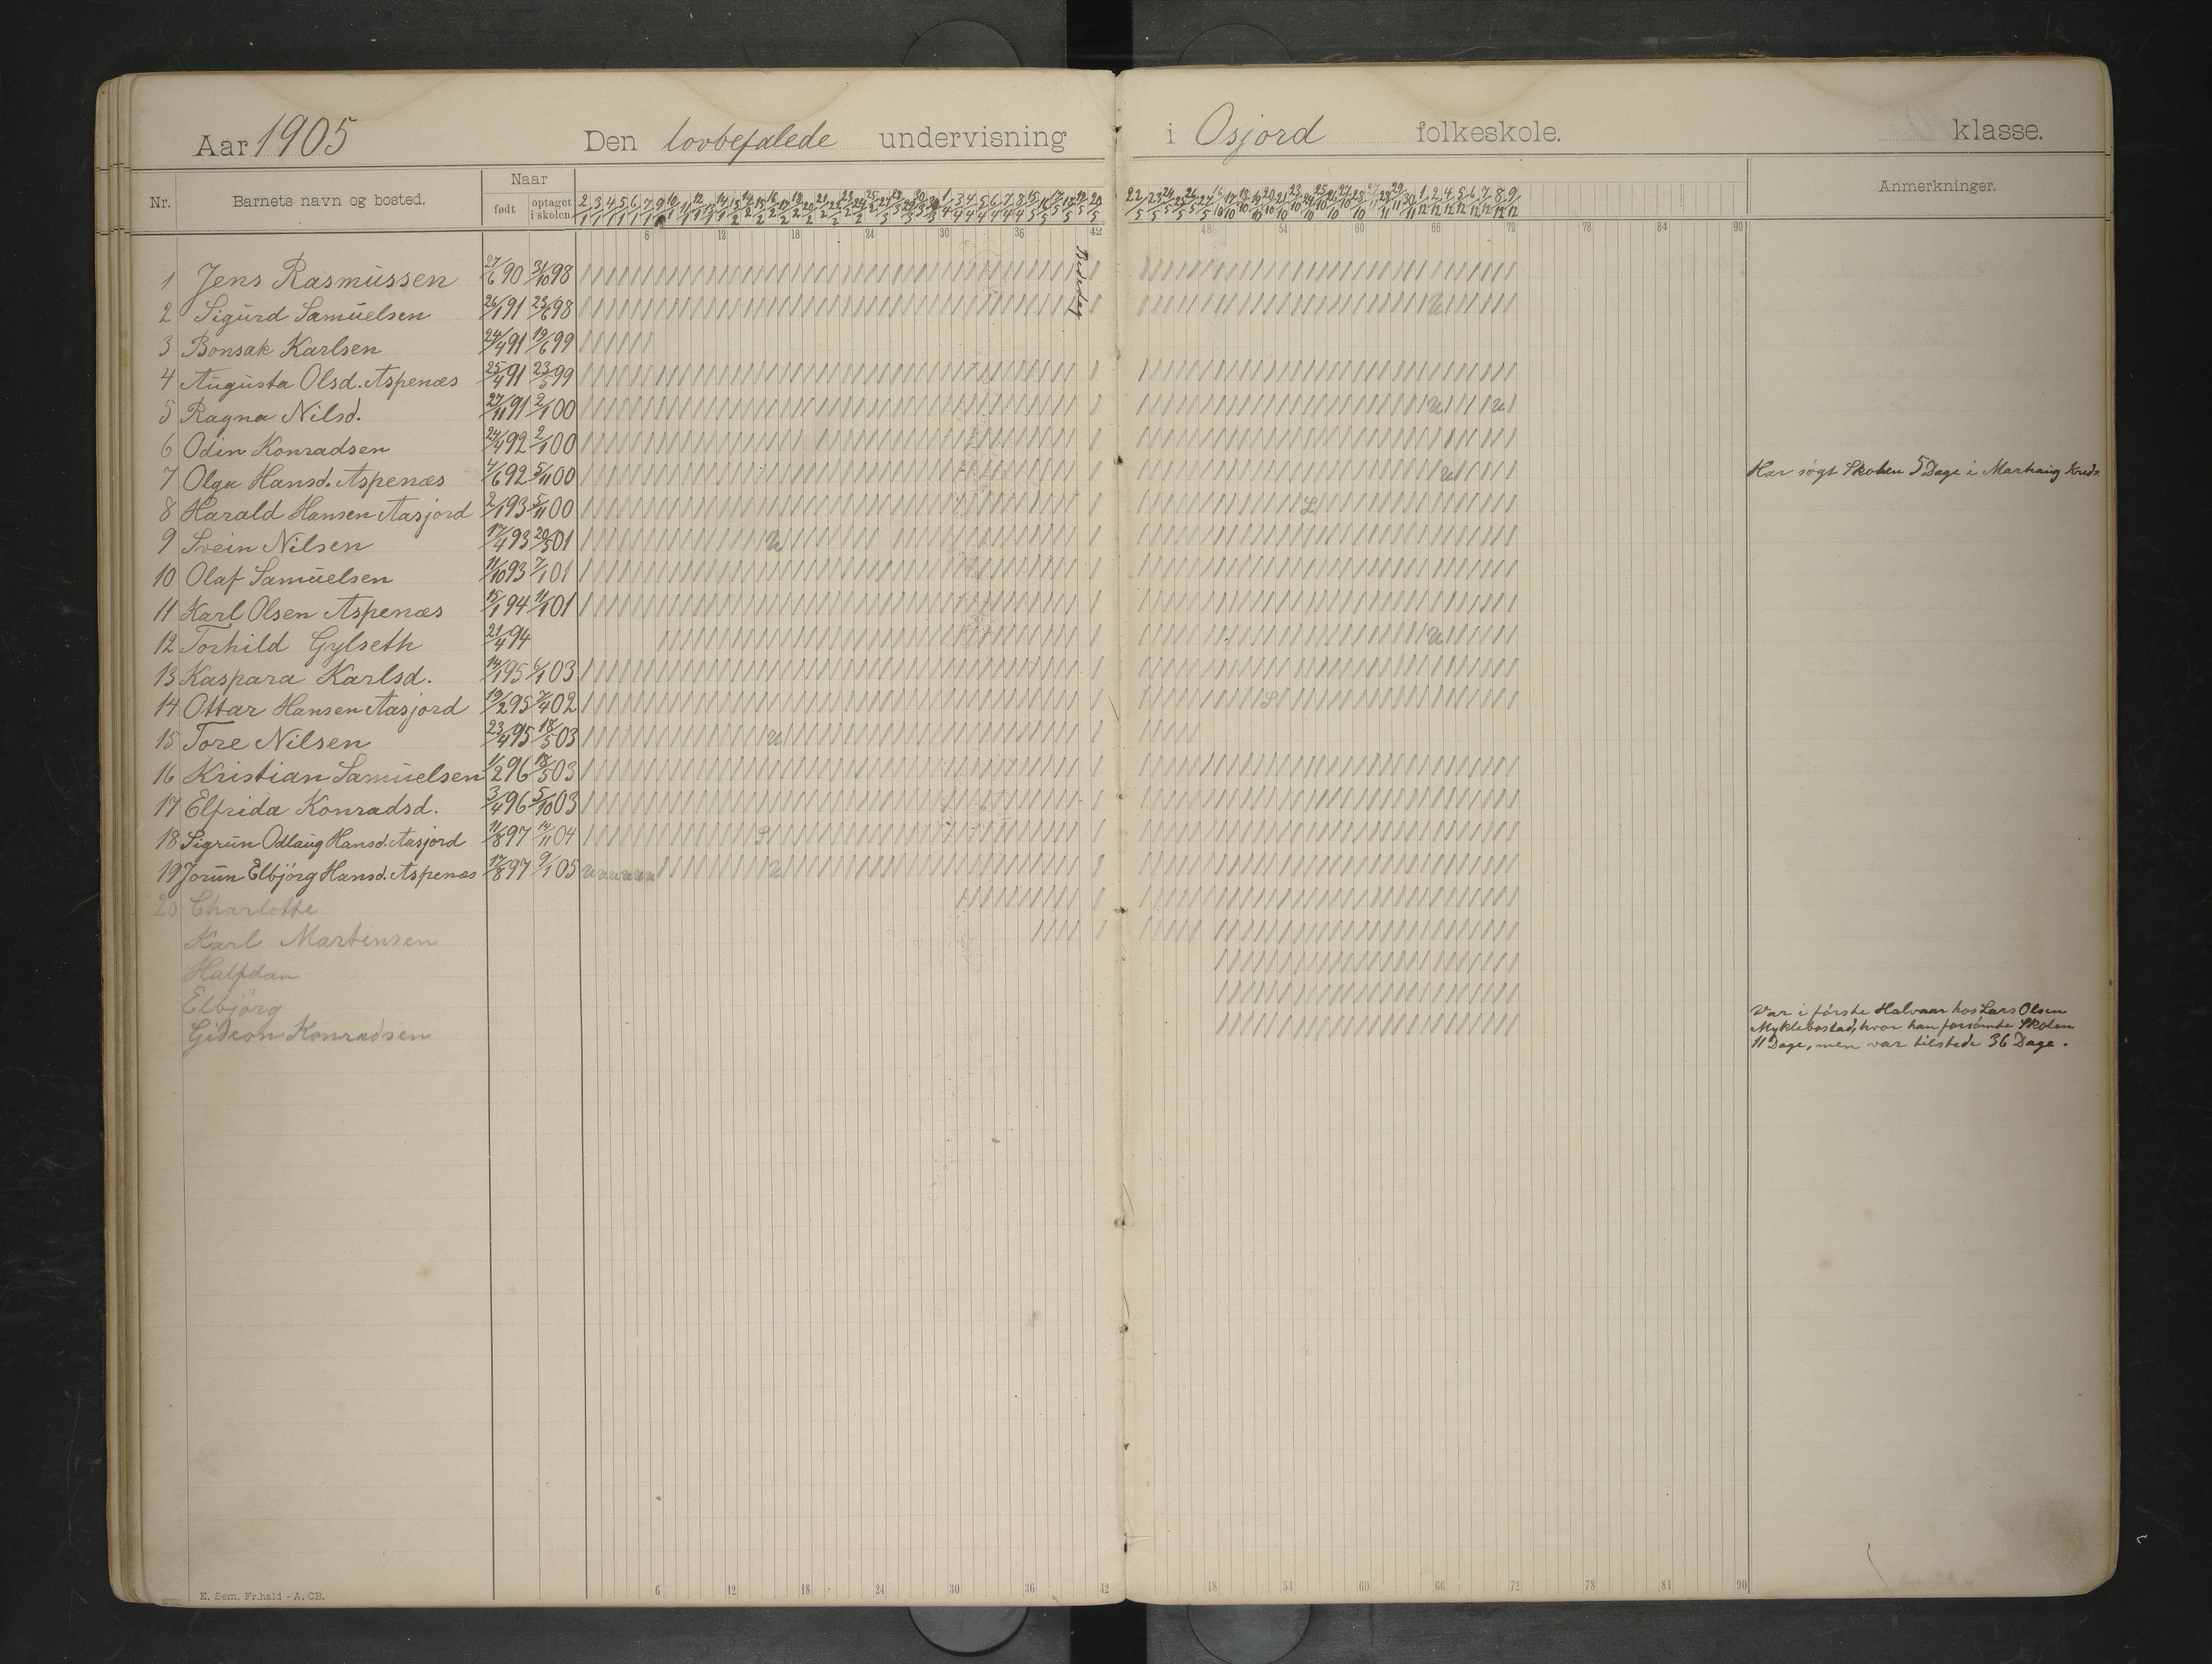 Aar 1905 Den lovbefalede undervisning i Osjord folkeskole. klasse.
Nr. Barnets navn og bosted. Naar født optaget i skolen Anmerkninger.
6 12 18 24 30 36 42 48 54 60 66 72 78 84 90
Bededag
1 Jens Rasmussen 27/6 90 31/10 98
2 Sigurd Samuelsen 26/1 91 23/6 98
3 Bonsak Karlsen 24/4 91 19/6 99
4 Augusta Olsd. Aspenæs 25/4 91 23/5 99
5 Ragna Nilsd. 27/11 91 2/1 00
6 Odin Konradsen 24/4 92 2/1 00
7 Olga Hansd. Aspenæs 4/6 92 5/11 00 Har søgt Skolen 5 Dage i Marhaug Kreds
8 Harald Hansen Aasjord 2/1 93 5/11 00
9 Svein Nilsen 17/4 93 20/5 01
10 Olaf Samuelsen 11/10 93 7/1 01
11 Karl Olsen Aspenæs 15/1 94 11/1 01
12 Torhild Gylseth 21/4 94
13 Kaspara Karlsd. 14/1 95 6/1 03
14 Ottar Hansen Aasjord 19/2 95 7/4 02
15 Tore Nilsen 23/4 95 18/5 03
16 Kristian Samuelsen 1/2 96 18/5 03
17 Elfrida Konradsd. 3/4 96 5/10 03
18 Sigrun Odlaug Hansd. Aasjord 11/8 97 14/11 04
19 Jorun Elbjörg Hansd. Aspenæs 17/8 97 9/1 05
20 Charlotte
Karl Martinsen
Halfdan
Elbjörg
Gideon Konradsen
Var i første Halvaar hos Lars Olsen
Myklebostad, hvor han forsømte Skolen
11 Dage, men var tilstede 36 Dage.
6 12 18 24 30 36 42 48 54 60 66 72 78 84 90
E. Sem, Fr.hald - A. CB.